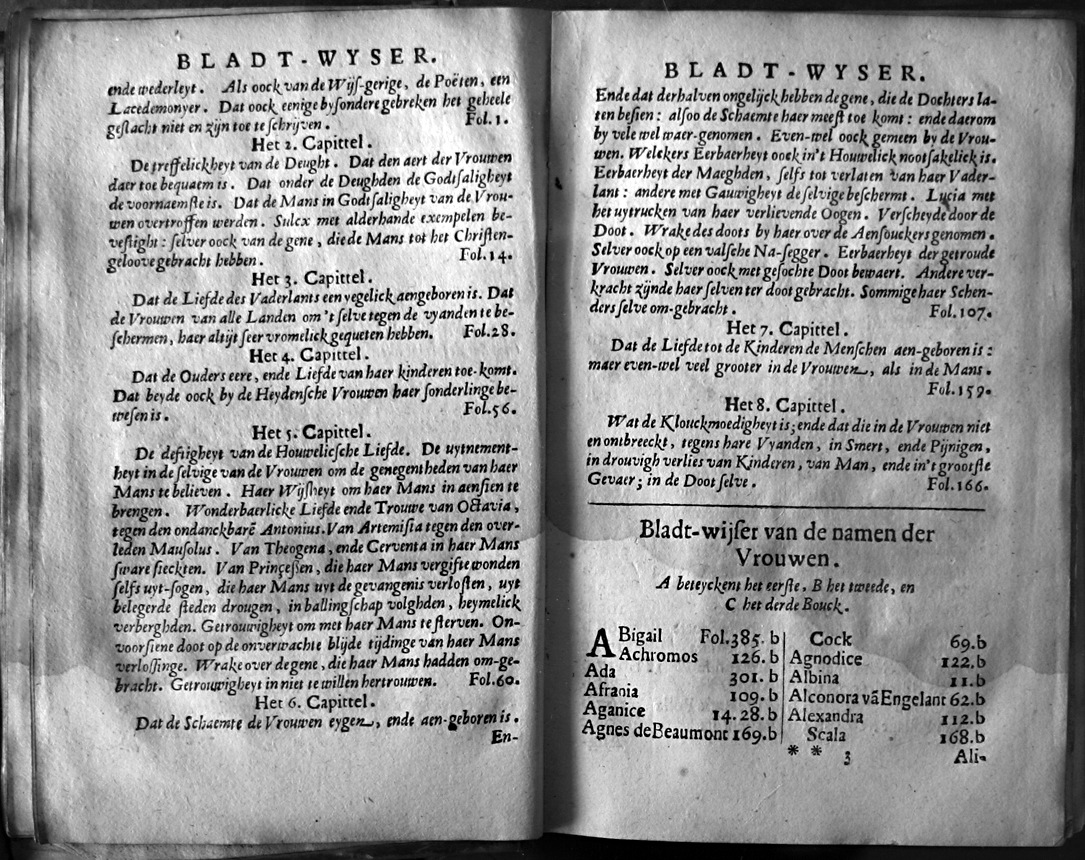 BLADT-WYSER.
ende wederleyt. Als oock van de Wijs-gerige, de Poëten, een
Lacedemonyer. Dat oock eenige bysondere gebreken het geheele
geslacht niet en zijn toe te schrijven. Fol. 1.
Het 2. Capittel.
De treffelickheyt van de Deught. Dat den aert der Vrouwen
daer toe bequaem is. Dat onder de Deughden de Godtsaligheyt
de voornaemste is. Dat de Mans in Godtsaligheyt van de Vrou-
wen overtroffen werden. Sulcx met alderhande exempelen be-
vestight: selver oock van de gene, die de Mans tot het Christen-
geloove gebracht hebben. Fol. 14.
Het 3. Capittel.
Dat de Liefde des Vaderlants een yegelick aengeboren is. Dat
de Vrouwen van alle Landen om 't selve tegen de vyanden te be-
schermen, haer altijt seer vromelick gequeten hebben. Fol. 28.
Het 4. Capittel.
Dat de Ouders eere, ende Liefde van haer kinderen toe-komt.
Dat beyde oock by de Heydensche Vrouwen haer sonderlinge be-
wesen is. Fol. 56.
Het 5. Capittel.
De deftigheyt van de Houwelicsche Liefde. De uytnement-
heyt in de selvige van de Vrouwen om de genegentheden van haer
Mans te believen. Haer Wijsheyt om haer Mans in aensien te
brengen. Wonderbaerlicke Liefde ende Trouwe van Octavia,
tegen den ondanckbarē Antonius. Van Artemisia tegen den over-
leden Mausolus. Van Theogena, ende Cerventa in haer Mans
sware sieckten. Van Prinçessen, die haer Mans vergifte wonden
selfs uyt-sogen, die haer Mans uyt de gevangenis verlosten, uyt
belegerde steden drougen, in ballingschap volghden, heymelick
verberghden. Getrouwigheyt om met haer Mans te sterven. On-
voorsiene doot op de onverwachte blijde tijdinge van haer Mans
verlossinge. Wrake over de gene, die haer Mans hadden om-ge-
bracht. Getrouwigheyt in niet te willen hertrouwen. Fol. 60.
Het 6. Capittel.
Dat de Schaemte de Vrouwen eygen, ende aen-geboren is.
En-
BLADT-WYSER.
Ende dat derhalven ongelijck hebben de gene, die de Dochters la-
ten besien: alsoo de Schaemte haer meest toe komt: ende daerom
by vele wel waer-genomen. Even-wel oock gemeen by de Vrou-
wen. Welckers Eerbaerheyt oock in't Houwelick nootsakelick is.
Eerbaerheyt der Maeghden, selfs tot verlaten van haer Vader-
lant: andere met Gauwigheyt de selvige beschermt. Lucia met
het uytrucken van haer verlievende Oogen. Verscheyde door de
Doot. Wrake des doots by haer over de Aensouckers genomen.
Selver oock op een valsche Na-segger. Eerbaerheyt der getroude
Vrouwen. Selver oock met gesochte Doot bewaert. Andere ver-
kracht zijnde haer selven ter doot gebracht. Sommige haer Schen-
ders selve om-gebracht. Fol. 107.
Het 7. Capittel.
Dat de Liefde tot de Kinderen de Menschen aen-geboren is:
maer even-wel veel grooter in de Vrouwen, als in de Mans.
Fol. 159.
Het 8. Capittel.
Wat de Klouckmoedigheyt is; ende dat die in de Vrouwen niet
en ontbreeckt, tegens hare Vyanden, in Smert, ende Pijnigen,
in drouvigh verlies van Kinderen, van Man, ende in't grootste
Gevaer; in de Doot selve. Fol. 166.
Bladt-wijser van de namen der
Vrouwen.
A beteyckent het eerste, B het tweede, en
C het derde Bouck.
ABigail Fol. 385. b
Achromos 126. b
Ada 301. b
Afrania 109. b
Aganice 14. 28. b
Agnes de Beaumont 169. b
Cock 69. b
Agnodice 122. b
Albina 11. b
Alconora vā Engelant 62. b
Alexandra 112. b
Scala 168. b
* * 3
Ali-